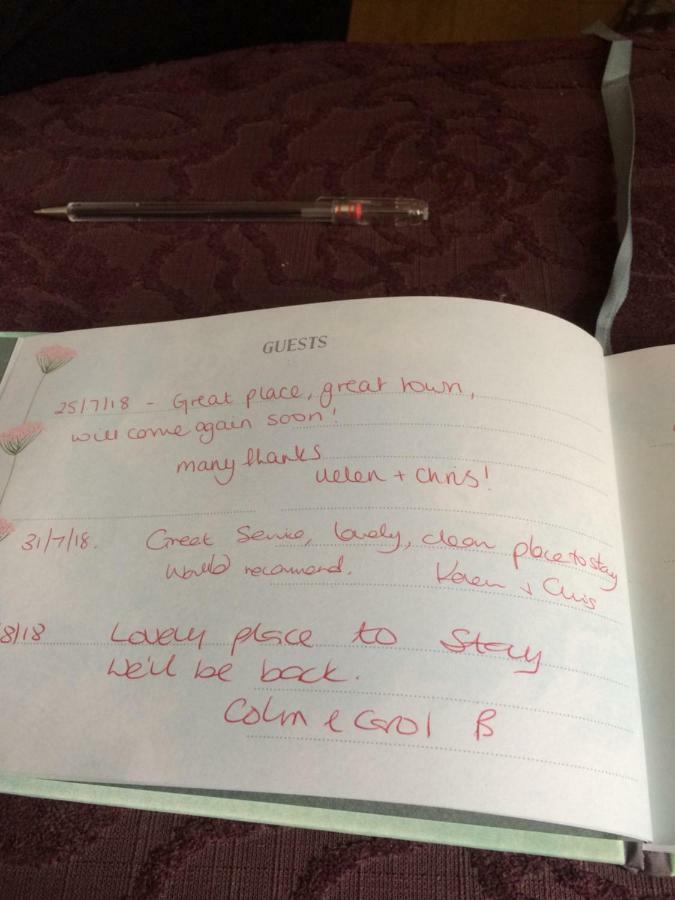 GUESTS
25/7/18 - Great place, great town,
will come again soon!
many thanks
Helen + Chris!
31/7/18. Great Service, lovely, clean place to stay
Would recommend. Karen + Chris
8/18 Lovely place to Stay
We'll be back.
Colm & Carol B